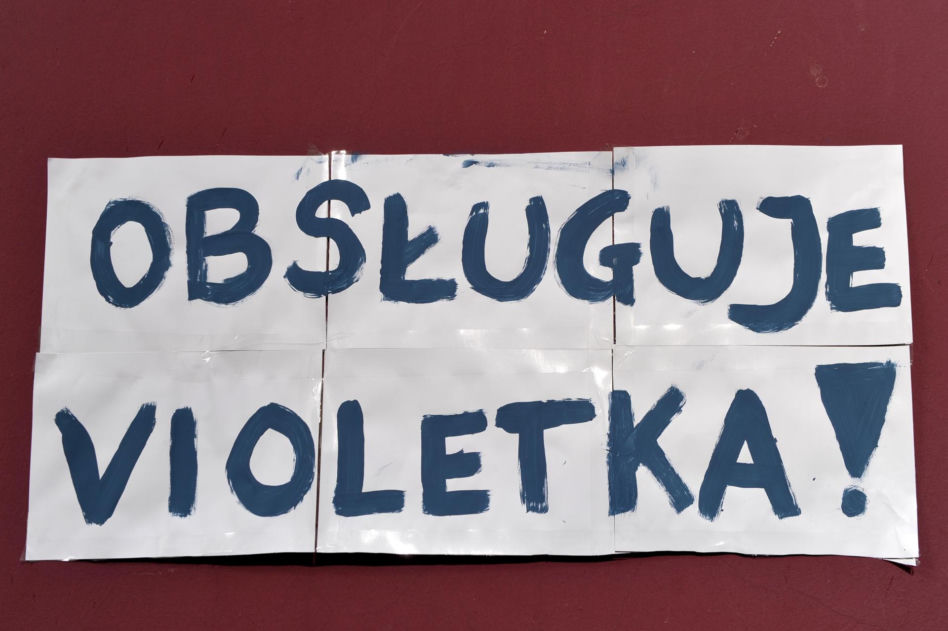 OBSŁUGUJE
VIOLETKA!